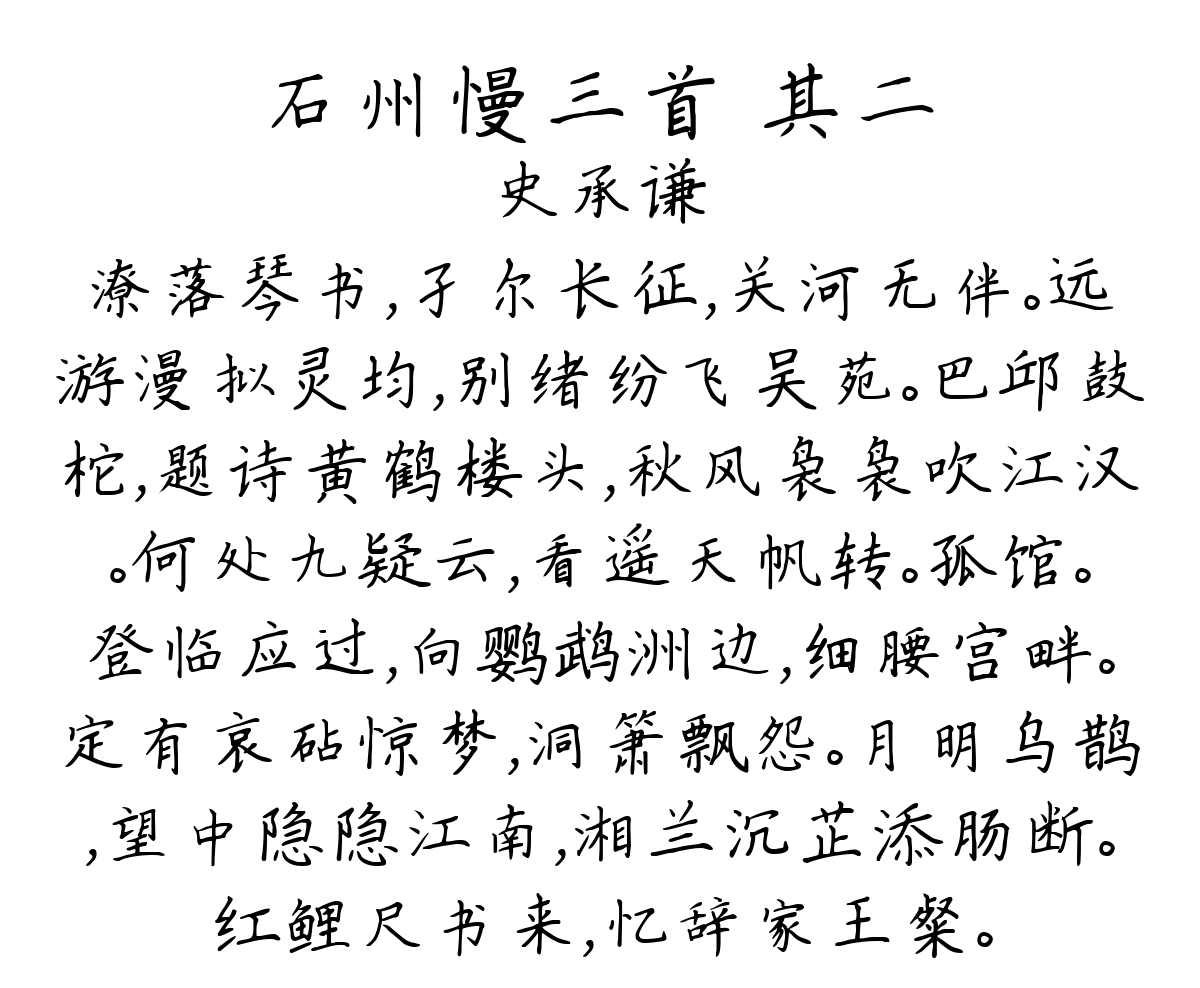 石州慢三首 其二
史承谦
潦落琴书,孑尔长征,关河无伴。远
游漫拟灵均,别绪纷飞吴苑。巴邱鼓
柁,题诗黄鹤楼头,秋风袅袅吹江汉
。何处九疑云,看遥天帆转。孤馆。
登临应过,向鹦鹉洲边,细腰宫畔。
定有哀砧惊梦,洞箫飘怨。月明乌鹊
,望中隐隐江南,湘兰沉芷添肠断。
红鲤尺书来,忆辞家王粲。